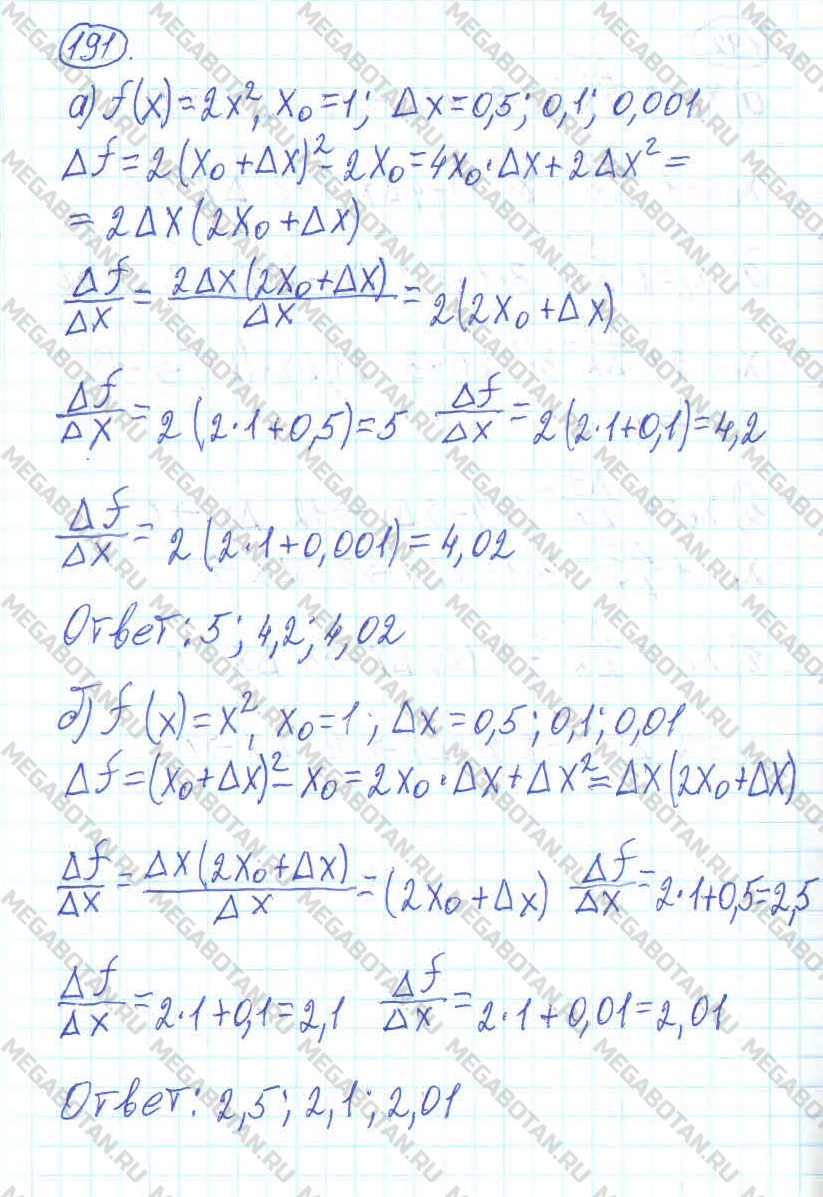 191.
а) f(x)=2x², x₀=1; Δx=0,5; 0,1; 0,001
Δf=2(x₀+Δx)²-2x₀=4x₀·Δx+2Δx²=
=2Δx(2x₀+Δx)
Δf/Δx=2Δx(2x₀+Δx)/Δx=2(2x₀+Δx)
Δf/Δx=2(2·1+0,5)=5 Δf/Δx=2(2·1+0,1)=4,2
Δf/Δx=2(2·1+0,001)=4,02
Ответ: 5; 4,2; 4,02
б) f(x)=x², x₀=1; Δx=0,5; 0,1; 0,01
Δf=(x₀+Δx)²-x₀=2x₀·Δx+Δx²=Δx(2x₀+Δx)
Δf/Δx=Δx(2x₀+Δx)/Δx=(2x₀+Δx) Δf/Δx=2·1+0,5=2,5
Δf/Δx=2·1+0,1=2,1 Δf/Δx=2·1+0,01=2,01
Ответ: 2,5; 2,1; 2,01
MEGABOTAN.RU